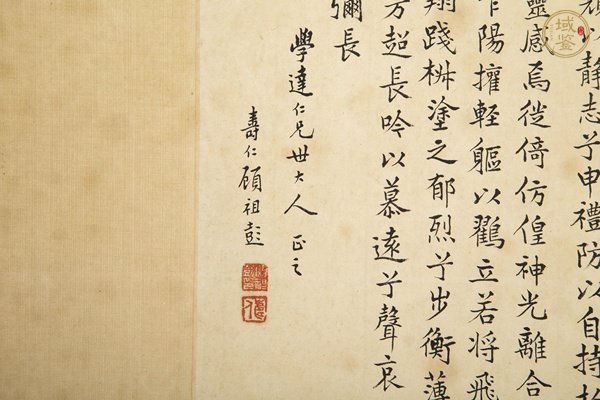 顏以静志兮申禮防以自持於
靈感焉徙倚仿偟神光離合
乍陽擁軽軀以鸖立若将飛
翔踐椒塗之郁烈兮步衡薄
芳超長吟以慕遠兮聲哀
彌長
學達仁兄世大人正之
壽仁顧祖彭
域鉴